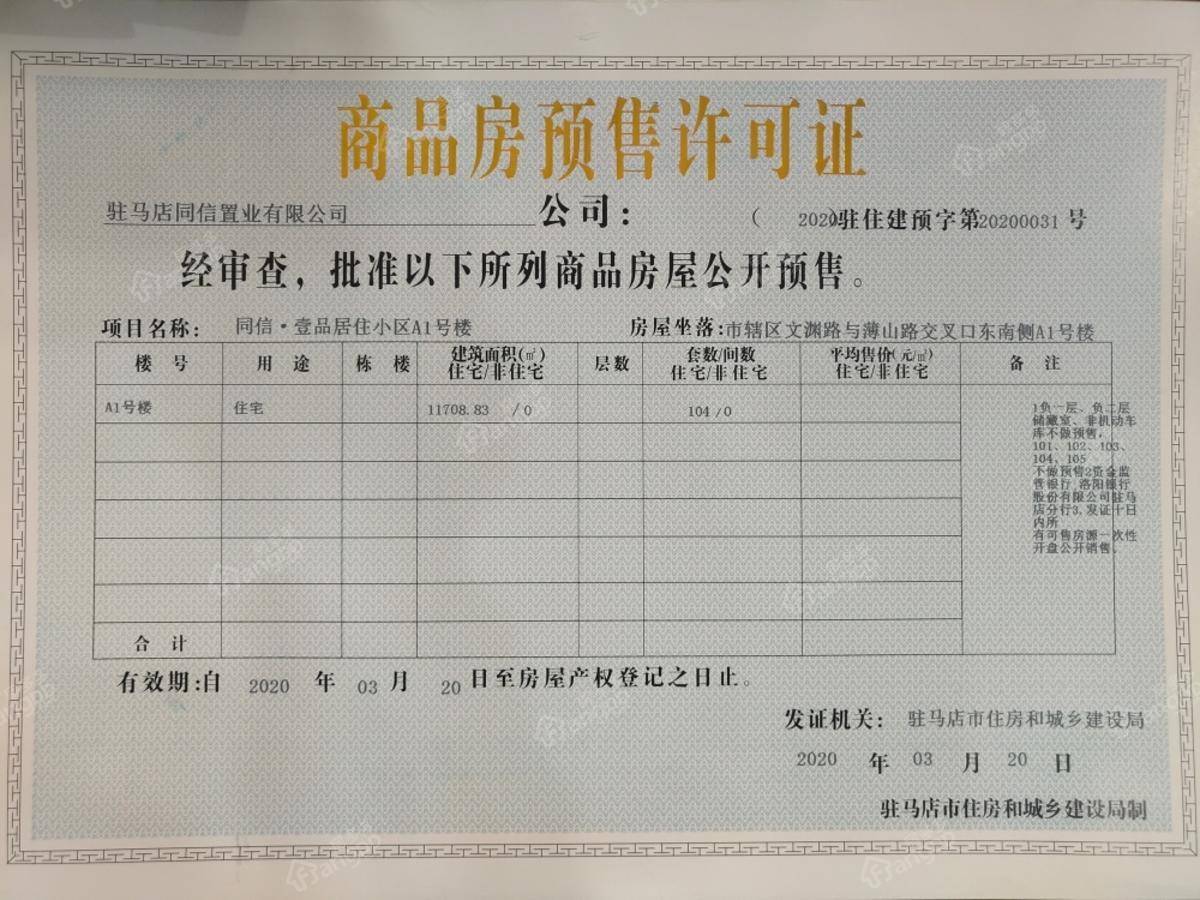 商品房预售许可证
驻马店同信置业有限公司 公司：
（ 2020）驻住建预字第20200031 号
经审查，批准以下所列商品房屋公开预售。
项目名称： 同信·壹品居住小区A1号楼 房屋坐落：市辖区文渊路与薄山路交叉口东南侧A1号楼
楼 号 用 途 栋 楼 建筑面积(㎡) 住宅/非住宅 层数 套数/间数 住宅/非住宅 平均售价(元/㎡) 住宅/非住宅 备 注
A1号楼 住宅 11708.83 /0 104 /0
1负一层、负二层
储藏室、非机动车
库不做预售，
101、102、103、
104、105
不做预售2资金监
管银行,洛阳银行
股份有限公司驻马
店分行3,发证十日
内所
有可售房源一次性
开盘公开销售。
合 计
有效期:自 2020 年 03 月 20 日至房屋产权登记之日止。
发证机关： 驻马店市住房和城乡建设局
2020 年 03 月 20 日
驻马店市住房和城乡建设局制